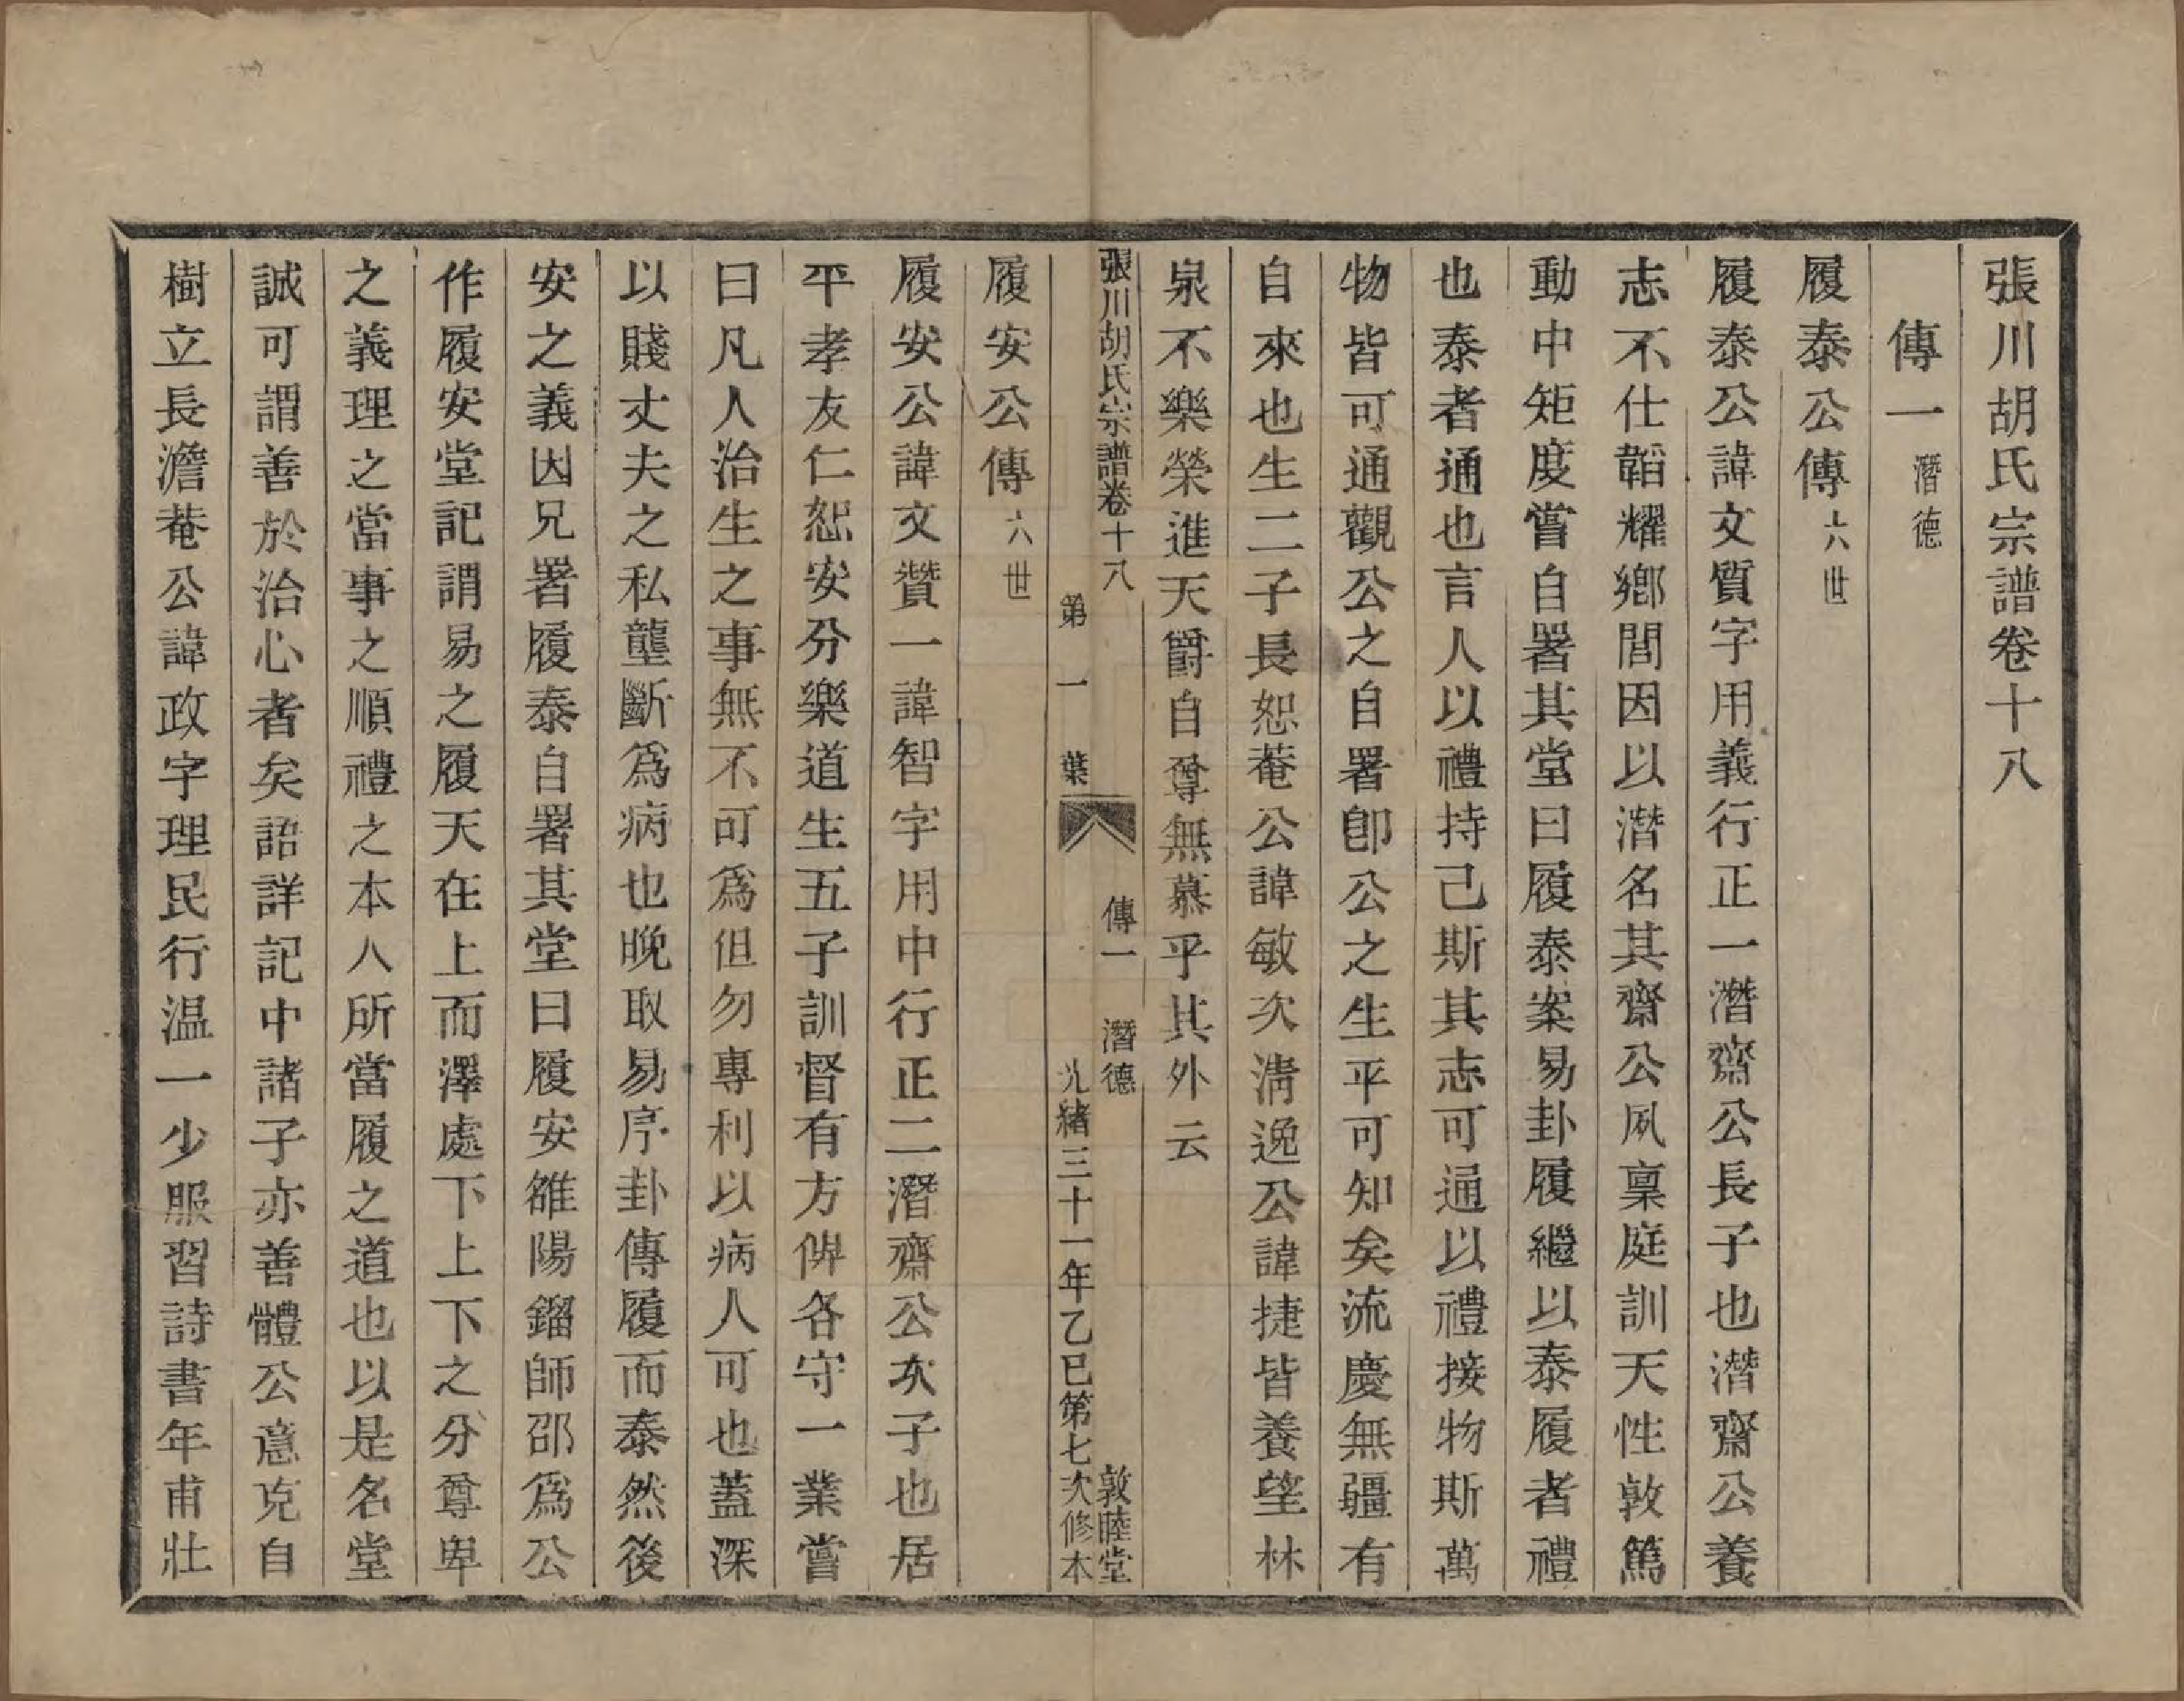 張川胡氏宗譜卷十八
傳一潛德
履泰公傳六世
履泰公諱文質字用義行正一潛齋公長子也潛齋公養
志不仕韜耀鄉閭因以潛名其齋公夙稟庭訓天性敦篤
動中矩度嘗自署其堂曰履泰案易卦履繼以泰履者禮
也泰者通也言人以禮持己斯其志可通以禮接物斯萬
物皆可通觀公之自署卽公之生平可知矣流慶無疆有
自來也生二子長恕菴公諱敏次淸逸公諱捷皆養望林
泉不樂榮進天爵自尊無慕乎其外云
張川胡氏宗譜卷十八 傳一 潛德 敦睦堂
第一葉 光緒三十一年乙巳第七次修本
履安公傳六世
履安公諱文贊一諱智字用中行正二潛齋公次子也居
平孝友仁恕安分樂道生五子訓督有方俾各守一業嘗
曰凡人治生之事無不可爲但勿專利以病人可也蓋深
以賤丈夫之私壟斷爲病也晚取易序卦傳履而泰然後
安之義因兄署履泰自署其堂曰履安雒陽鎦師邵爲公
作履安堂記謂易之履天在上而澤處下上下之分尊卑
之義理之當事之順禮之本人所當履之道也以是名堂
誠可謂善於治心者矣詔詳記中諸子亦善體公意克自
樹立長澹菴公諱政字理民行温一少服習詩書年甫壯